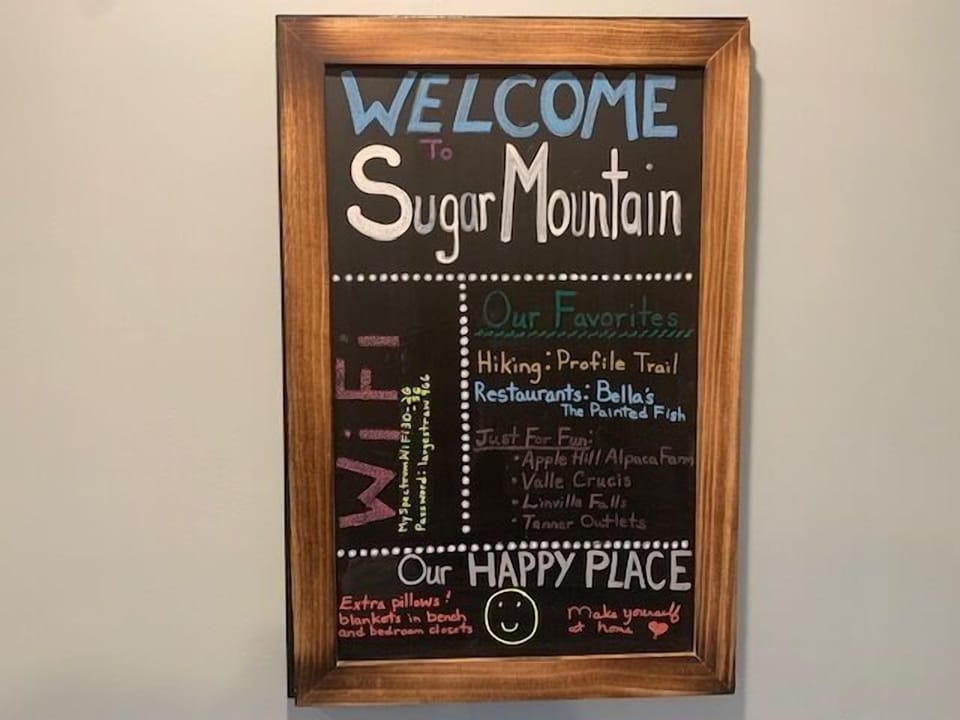 WELCOME
To
Sugar Mountain
WiFi
MySpectrumWiFi30-2G
-5G
Password: largestraw966
Our Favorites
Hiking: Profile Trail
Restaurants: Bella's
The Painted Fish
Just For Fun:
• Apple Hill Alpaca Farm
• Valle Crucis
• Linville Falls
• Tanner Outlets
Our HAPPY PLACE
Extra pillows!
blankets in bench
and bedroom closets
Make yourself
at home